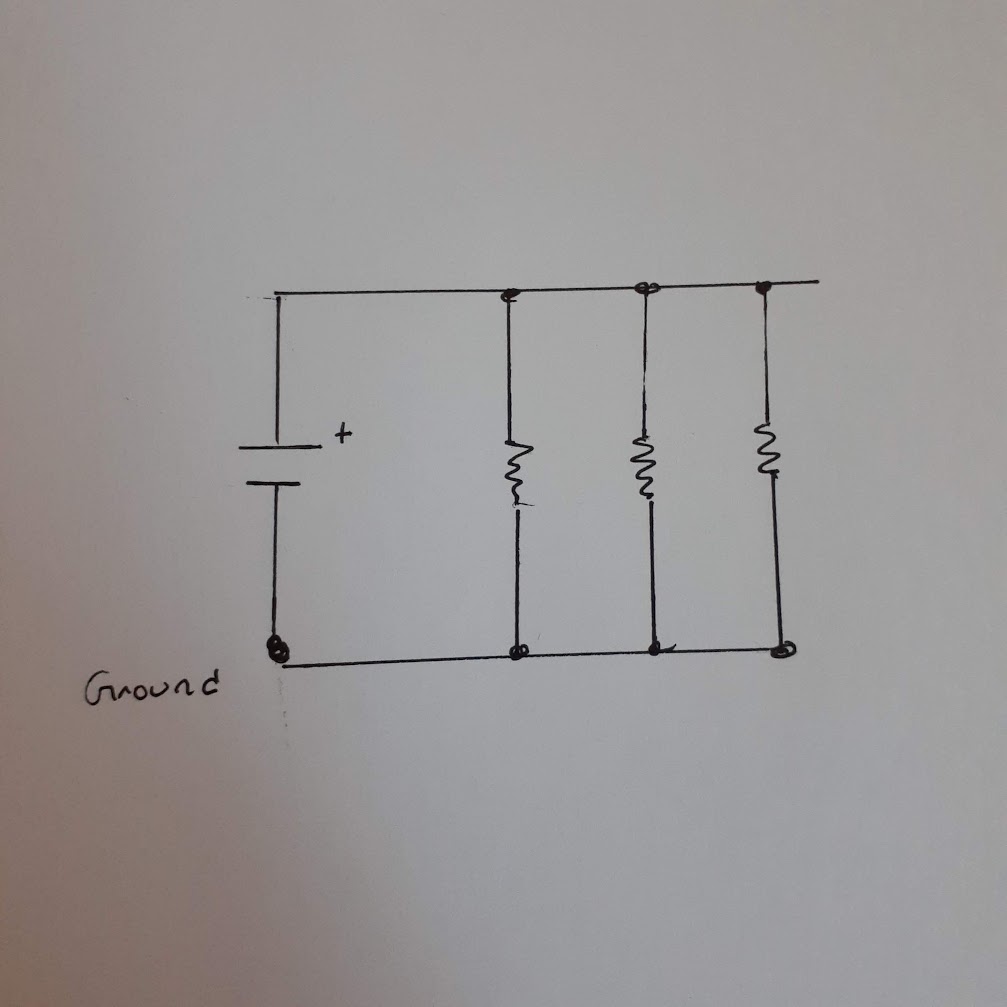 +
Ground